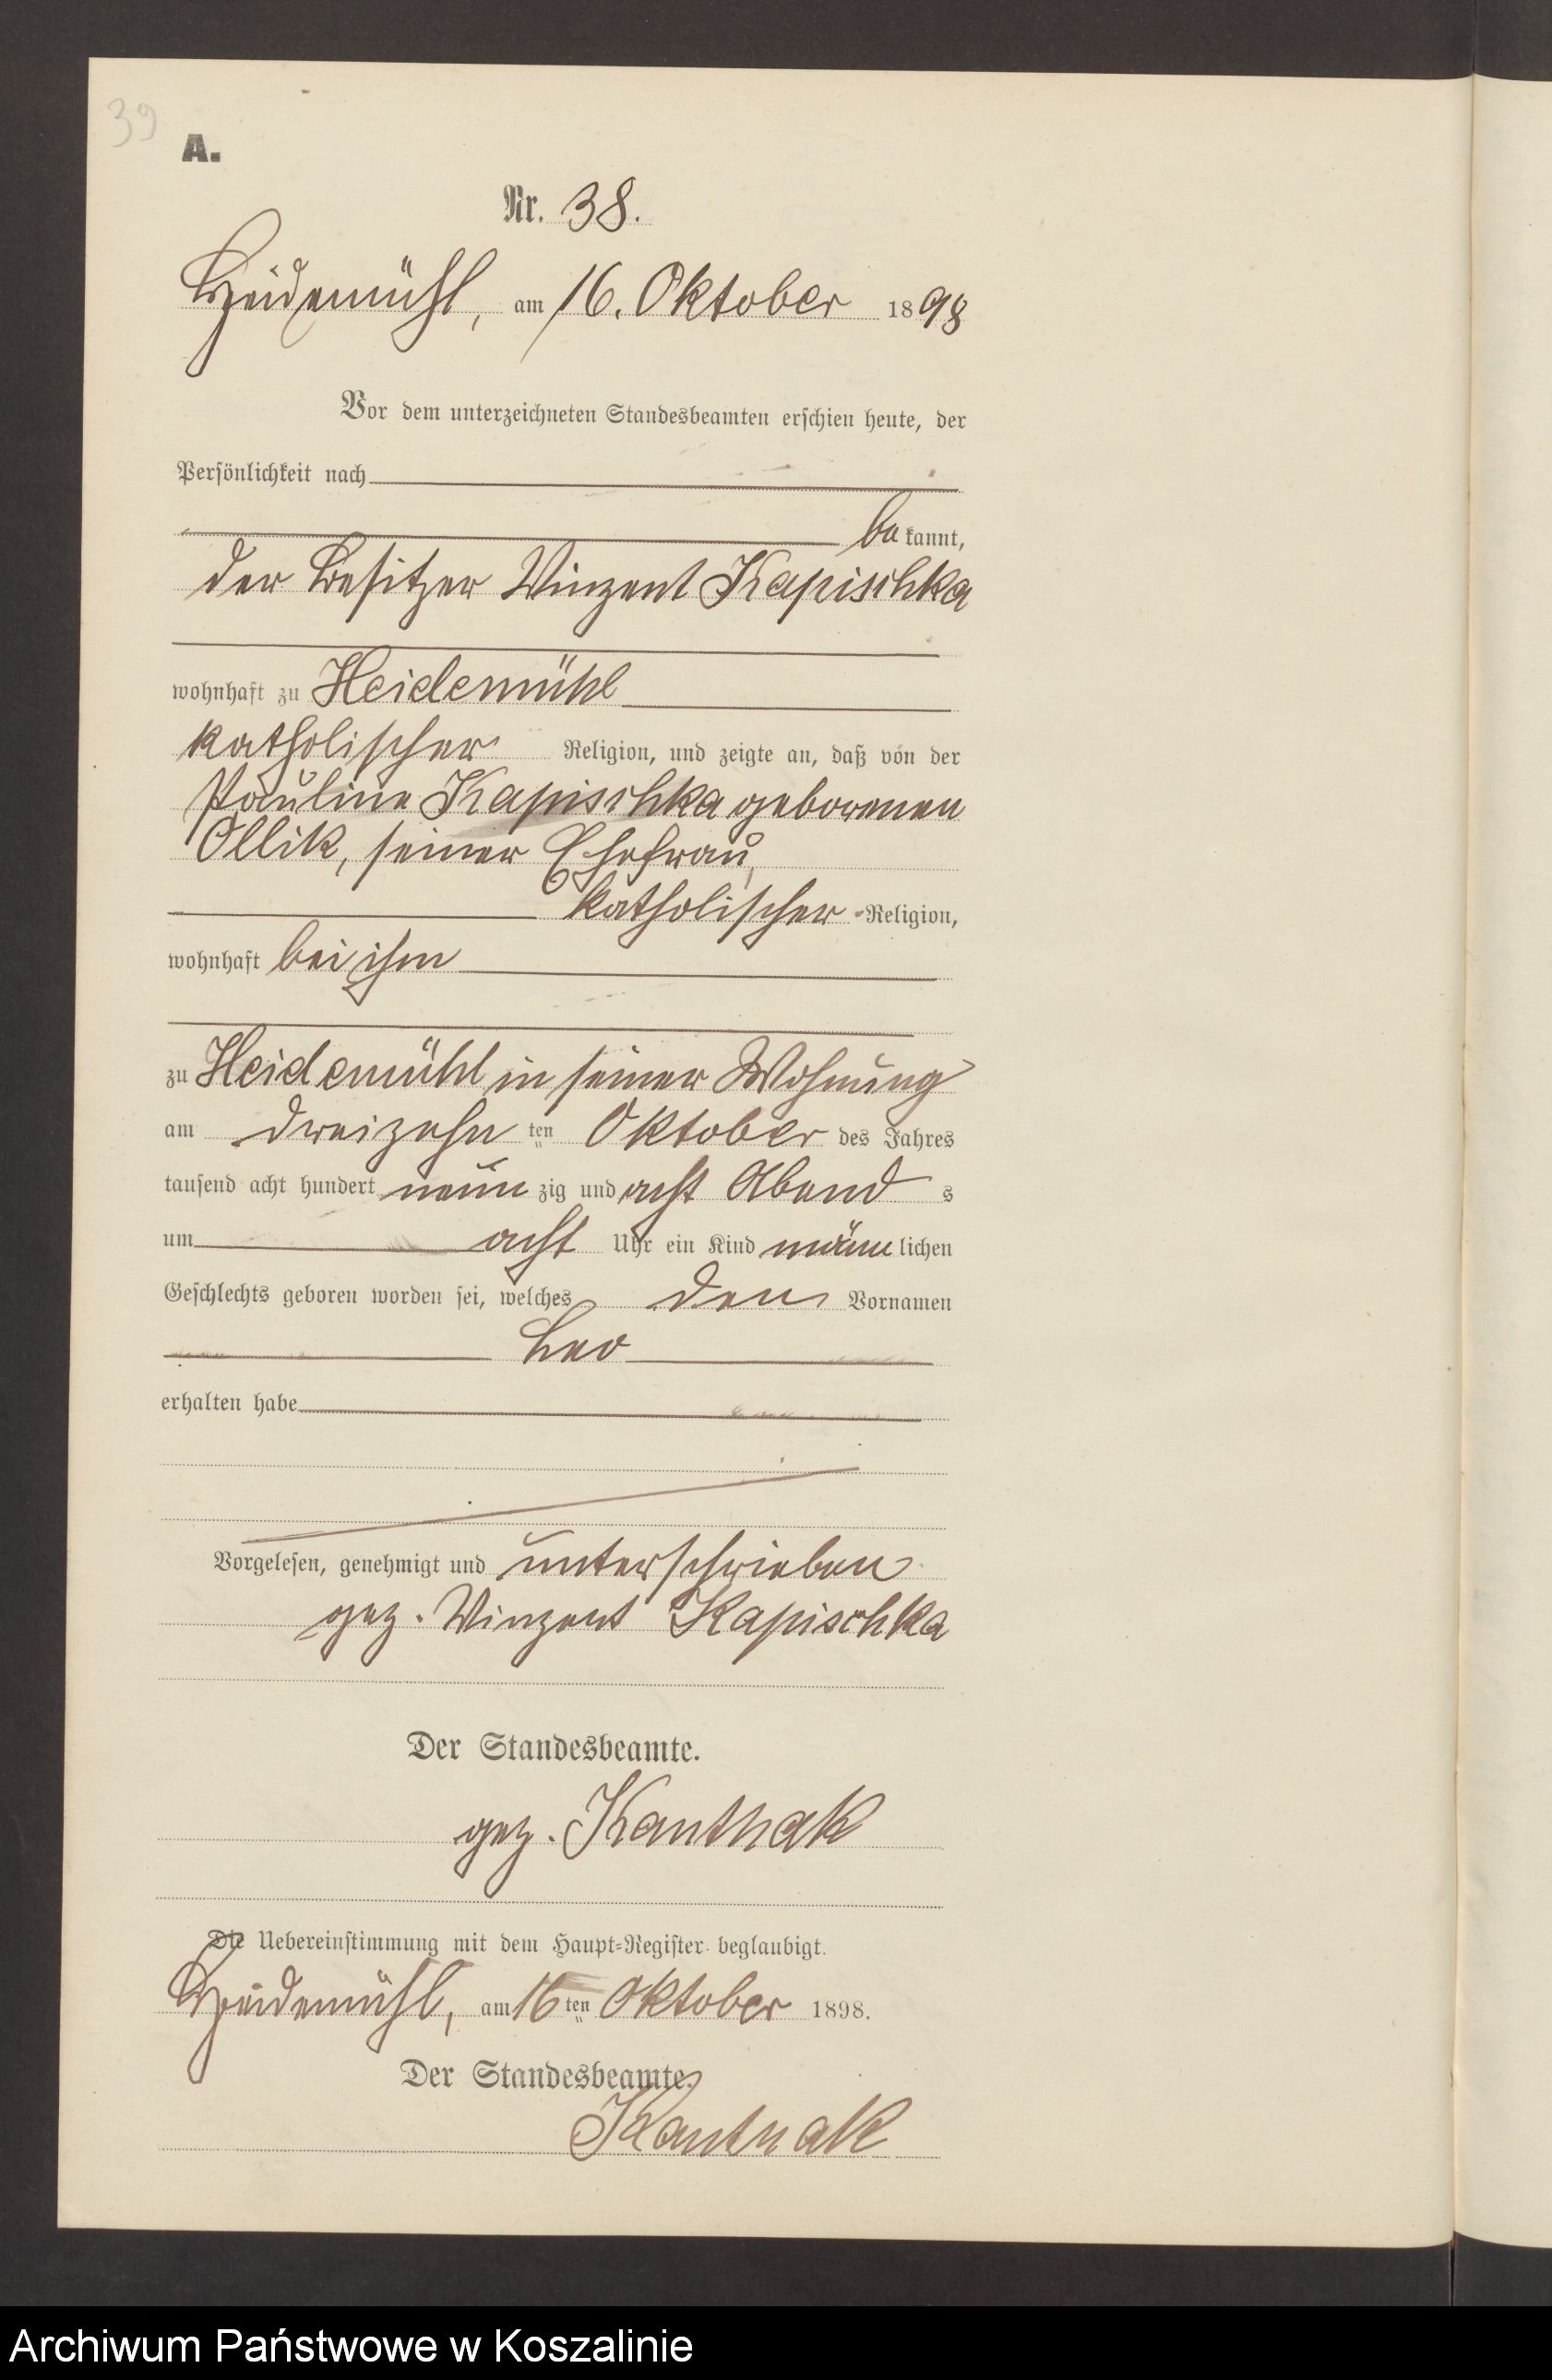 39
A.
Nr. 38.
Heidemühl, am 16. Oktober 1898
Vor dem unterzeichneten Standesbeamten erschien heute, der
Persönlichkeit nach
bekannt,
der Besitzer Vinzent Kapischka
wohnhaft zu Heidemühl
katholischer Religion, und zeigte an, daß von der
Pauline Kapischka geborenen
Ollik, seiner Ehefrau,
katholischer Religion,
wohnhaft bei ihm
zu Heidemühl in seiner Wohnung
am dreizehn ten Oktober des Jahres
tausend acht hundert neun zig und acht Abend s
um acht Uhr ein Kind männlichen
Geschlechts geboren worden sei, welches den Vornamen
Leo
erhalten habe
Vorgelesen, genehmigt und unterschrieben
gez. Vinzent Kapischka
Der Standesbeamte.
gez. Kanthak
Die Uebereinstimmung mit dem Haupt-Register beglaubigt.
Heidemühl, am 16 ten Oktober 1898.
Der Standesbeamte.
Kanthak
Archiwum Państwowe w Koszalinie